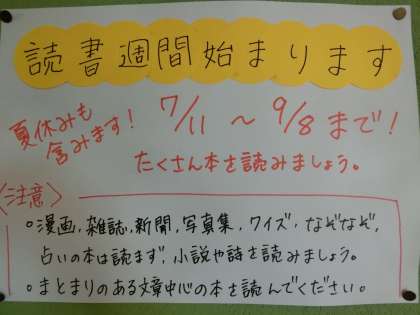 読書週間始まります
夏休みも
含みます!
7/11 ~ 9/8 まで!
たくさん本を読みましょう。
<注意>
○漫画,雑誌,新聞,写真集,クイズ・なぞなぞ,
占いの本は読まず,小説や詩を読みましょう。
○まとまりのある文章中心の本を読んでください。